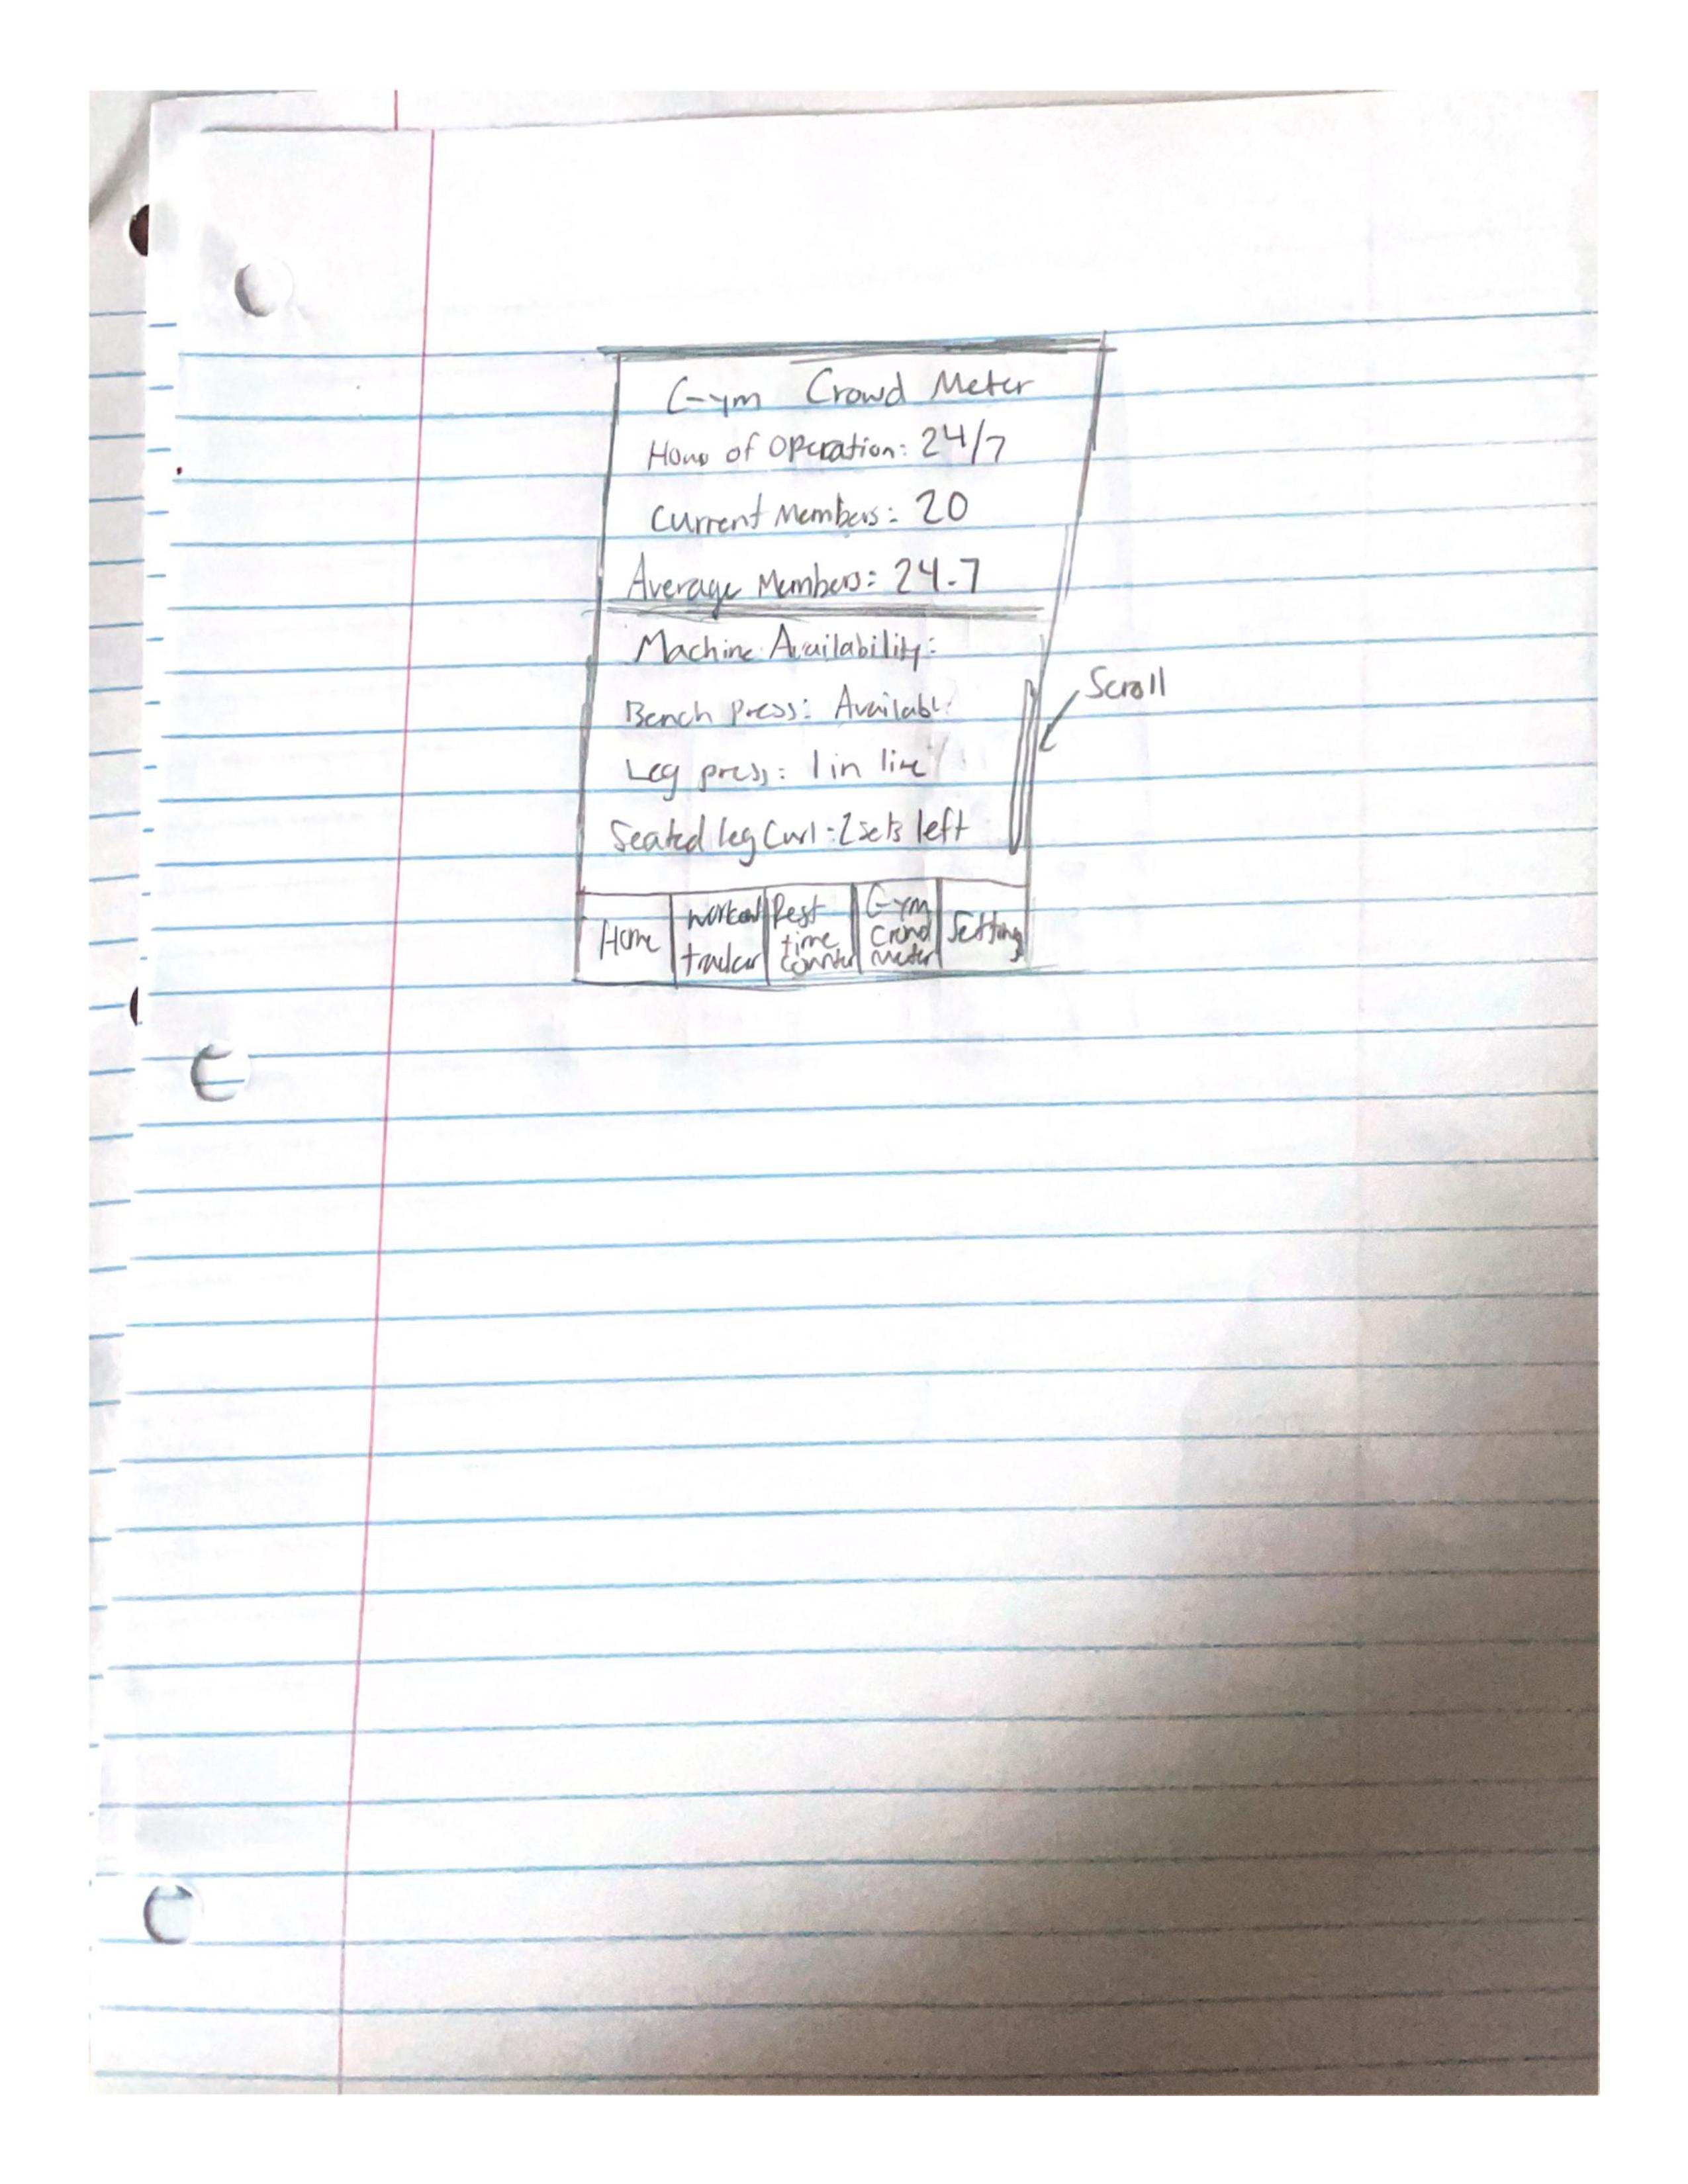 Gym Crowd Meter
Hours of Operation: 24/7
Current Members: 20
Average Members: 24.7
Machine Availability:
Bench Press: Available
Scroll
Leg press: 1 in line
Seated Leg Curl: 2 sets left
Home
Workout tracker
Rest time counter
Gym Crowd meter
Settings